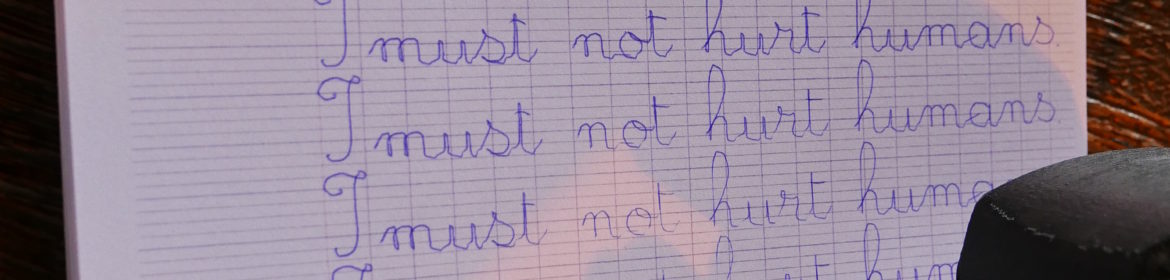 I must not hurt humans.
I must not hurt humans.
I must not hurt